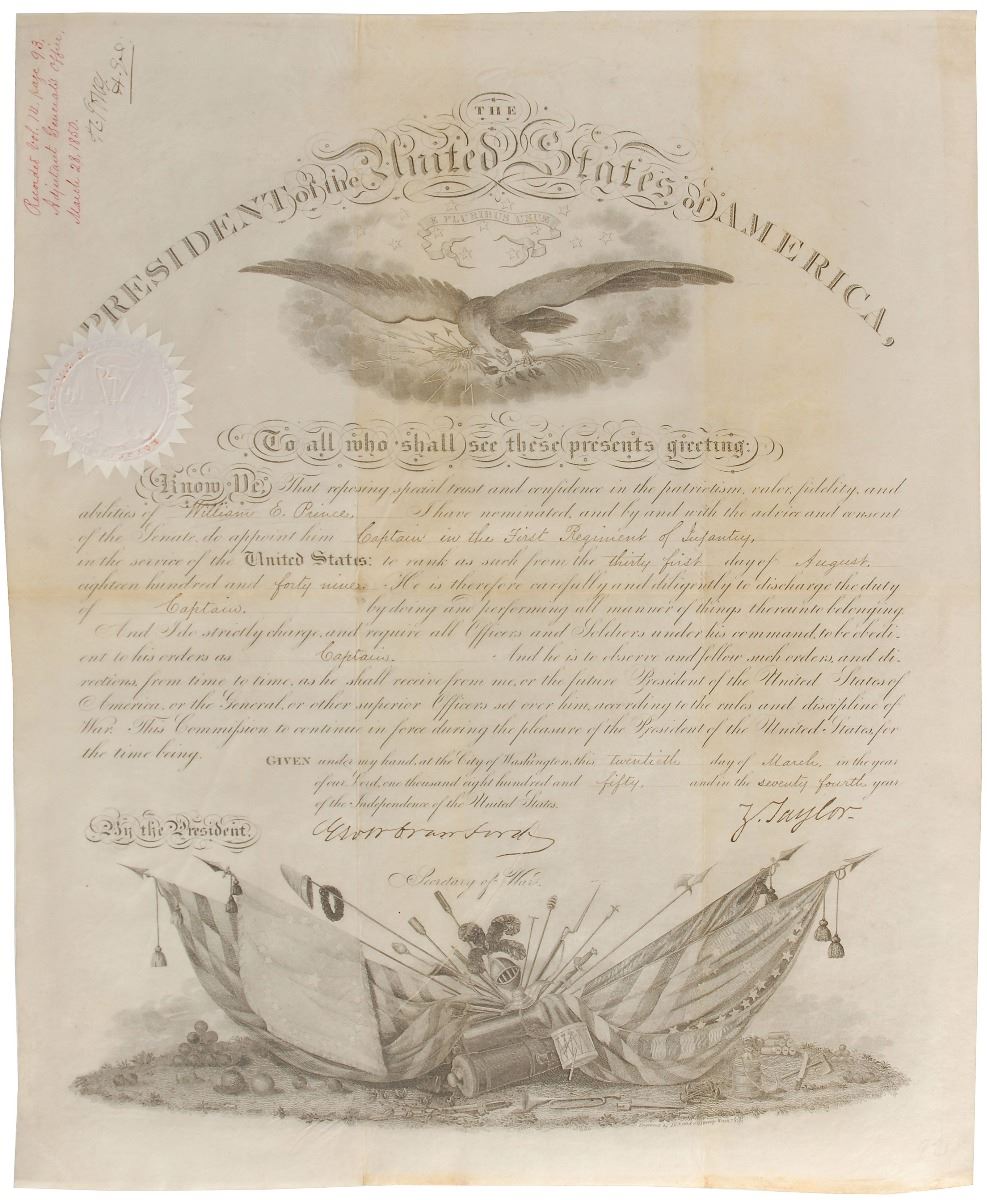 Recorded Vol. 12. page 93.
Adjutant General's Office,
March 28, 1850.
THE
PRESIDENT of the United States of AMERICA,
E PLURIBUS UNUM
To all who shall see these presents greeting:
Know Ye, That reposing special trust and confidence in the patriotism, valor, fidelity, and
abilities of William E. Prince, I have nominated, and by and with the advice and consent
of the Senate, do appoint him Captain in the First Regiment of Infantry,
in the service of the United States: to rank as such from the thirty first day of August,
eighteen hundred and forty nine. He is therefore carefully and diligently to discharge the duty
of Captain. by doing and performing all manner of things thereunto belonging.
And I do strictly charge, and require all Officers and Soldiers under his command, to be obedi-
ent to his orders as Captain. And he is to observe and follow such orders, and di-
rections, from time to time, as he shall receive from me, or the future President of the United States of
America, or the General, or other superior Officers set over him, according to the rules and discipline of
War. This Commission to continue in force during the pleasure of the President of the United States, for
the time being.
GIVEN under my hand, at the City of Washington, this twentieth day of March, in the year
of our Lord, one thousand eight hundred and fifty, and in the seventy fourth year
of the Independence of the United States.
Z. Taylor
By the President,
Geo W Crawford
Secretary of War.